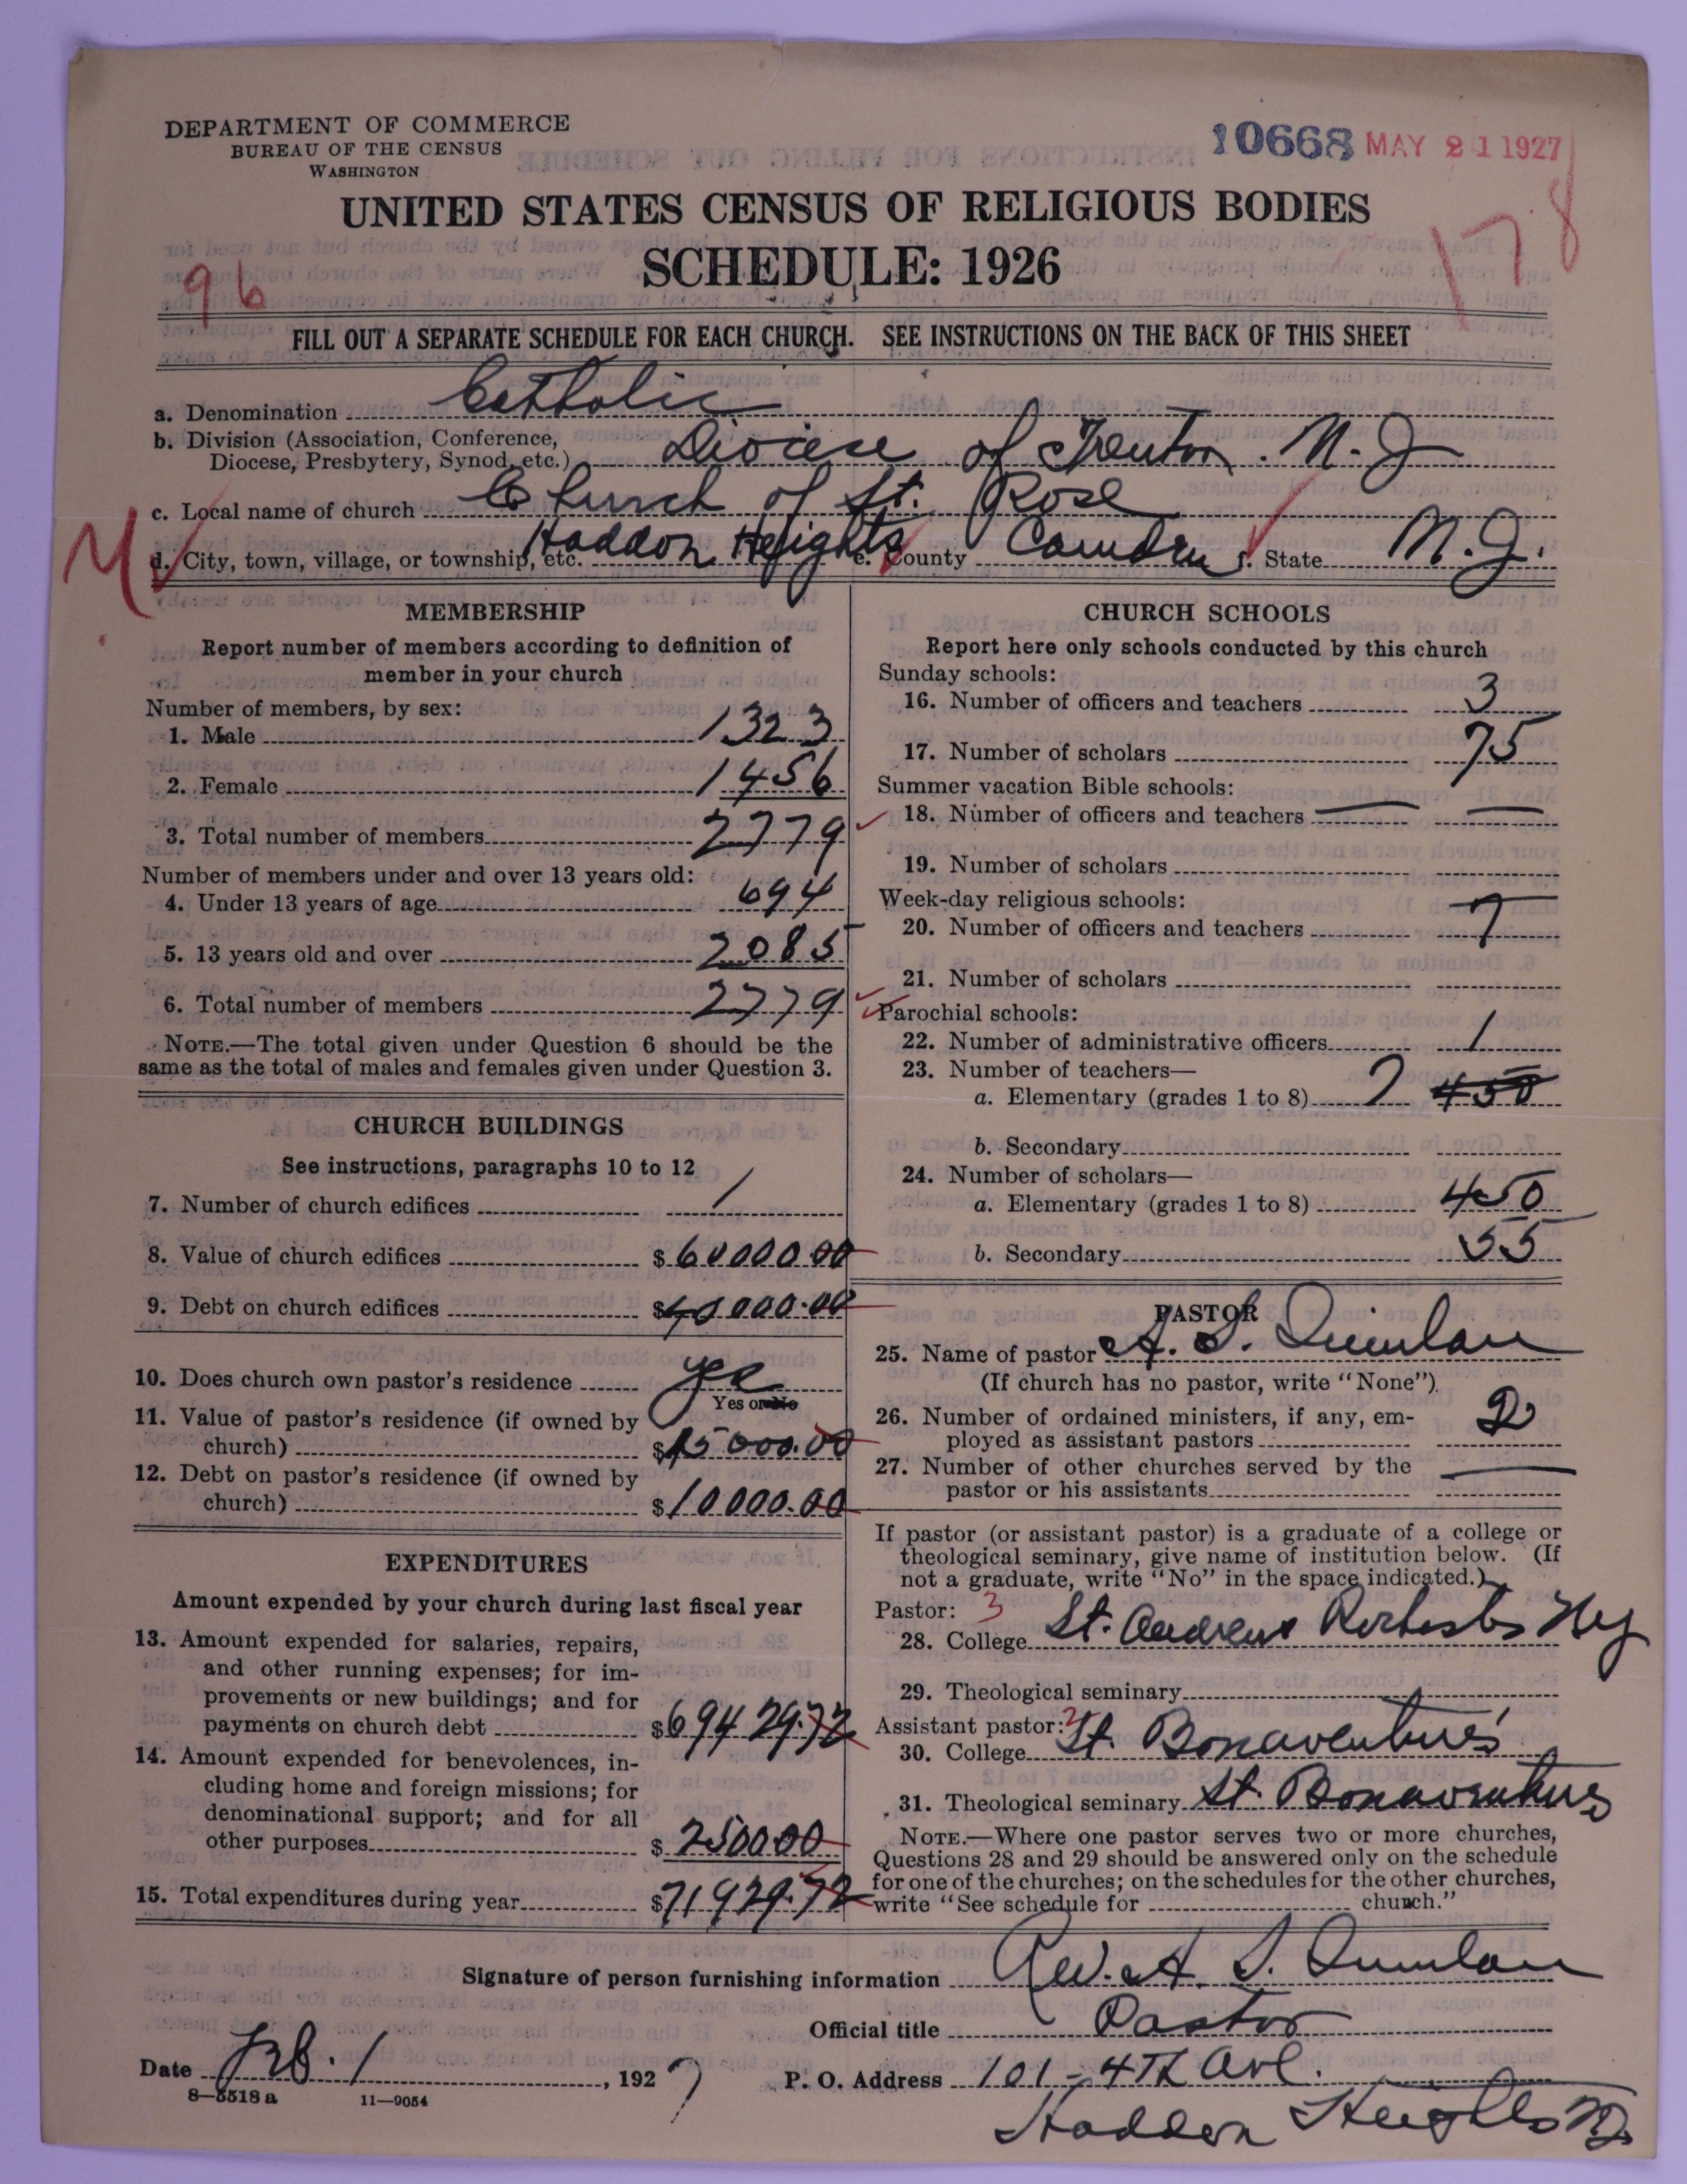 DEPARTMENT OF COMMERCE
BUREAU OF THE CENSUS
WASHINGTON
10668 MAY 21 1927
UNITED STATES CENSUS OF RELIGIOUS BODIES
SCHEDULE: 1926
96
178
FILL OUT A SEPARATE SCHEDULE FOR EACH CHURCH. SEE INSTRUCTIONS ON THE BACK OF THIS SHEET
a. Denomination Catholic
b. Division (Association, Conference,
Diocese, Presbytery, Synod, etc.) Diocese of Trenton. N. J
c. Local name of church Church of St. Rose
d. City, town, village, or township, etc. Haddon Heights e. County Camden f. State N. J.
MEMBERSHIP
Report number of members according to definition of
member in your church
Number of members, by sex:
1. Male 1323
2. Female 1456
3. Total number of members 2779
Number of members under and over 13 years old:
4. Under 13 years of age 694
5. 13 years old and over 2085
6. Total number of members 2779
NOTE.—The total given under Question 6 should be the
same as the total of males and females given under Question 3.
CHURCH BUILDINGS
See instructions, paragraphs 10 to 12
7. Number of church edifices 1
8. Value of church edifices $60000.00
9. Debt on church edifices $40000.00
10. Does church own pastor's residence Yes
Yes or No
11. Value of pastor's residence (if owned by
church) $15000.00
12. Debt on pastor's residence (if owned by
church) $10000.00
EXPENDITURES
Amount expended by your church during last fiscal year
13. Amount expended for salaries, repairs,
and other running expenses; for im-
provements or new buildings; and for
payments on church debt $69429.72
14. Amount expended for benevolences, in-
cluding home and foreign missions; for
denominational support; and for all
other purposes $2500.00
15. Total expenditures during year $71929.72
CHURCH SCHOOLS
Report here only schools conducted by this church
Sunday schools:
16. Number of officers and teachers 3
17. Number of scholars 75
Summer vacation Bible schools:
18. Number of officers and teachers
19. Number of scholars
Week-day religious schools:
20. Number of officers and teachers 7
21. Number of scholars
Parochial schools:
22. Number of administrative officers 1
23. Number of teachers—
a. Elementary (grades 1 to 8) 7 450
b. Secondary
24. Number of scholars—
a. Elementary (grades 1 to 8) 450
b. Secondary 55
PASTOR
25. Name of pastor A. S. Quinlan
(If church has no pastor, write "None").
26. Number of ordained ministers, if any, em-
ployed as assistant pastors 2
27. Number of other churches served by the
pastor or his assistants
If pastor (or assistant pastor) is a graduate of a college or
theological seminary, give name of institution below. (If
not a graduate, write "No" in the space indicated.)
Pastor: 3
28. College St. Andrews Rochester Ny
29. Theological seminary
Assistant pastor:
30. College St. Bonaventure's
31. Theological seminary St. Bonaventures
NOTE.—Where one pastor serves two or more churches,
Questions 28 and 29 should be answered only on the schedule
for one of the churches; on the schedules for the other churches,
write "See schedule for church."
Signature of person furnishing information Rev. A. S. Quinlan
Official title Pastor
Date Feb. 1, 1927
P. O. Address 101-4th Ave.
Haddon Heights NJ.
8—5518 a 11—9054